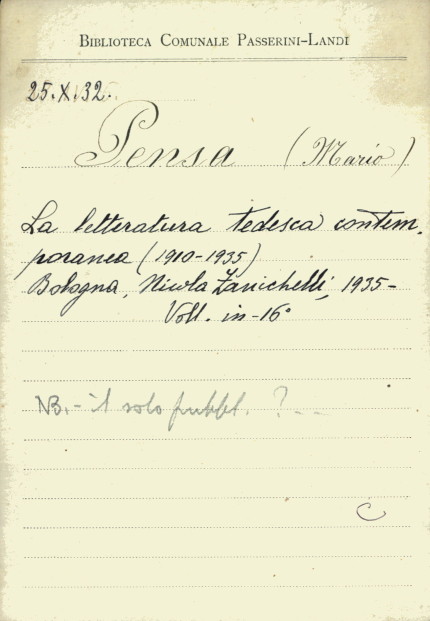 BIBLIOTECA COMUNALE PASSERINI-LANDI
25.X.32.
Pensa (Mario)
La letteratura tedesca contem.
poranea (1910-1935)
Bologna, Nicola Zanichelli, 1935-
Voll. in-16°
NB.- il solo pubbl. ?--
C